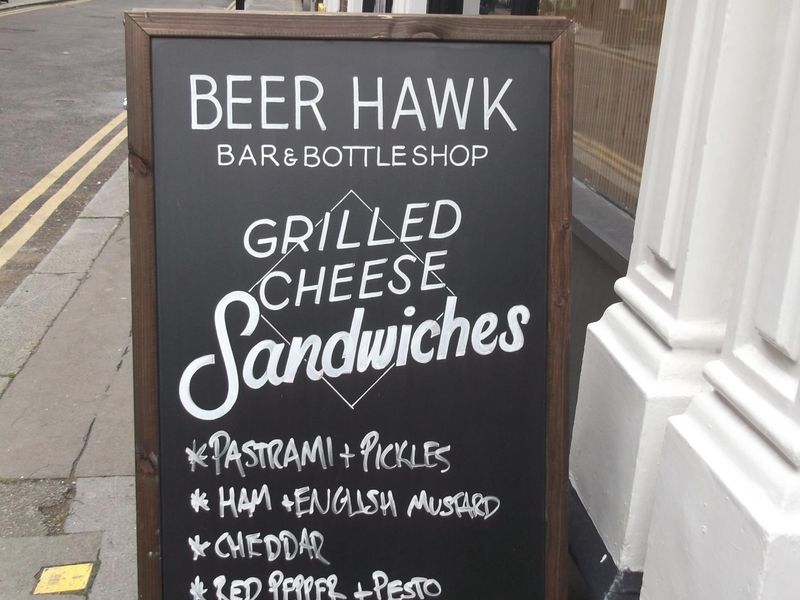 BEER HAWK
BAR & BOTTLE SHOP
GRILLED
CHEESE
Sandwiches
* PASTRAMI + PICKLES
* HAM + ENGLISH MUSTARD
* CHEDDAR
* RED PEPPER + PESTO